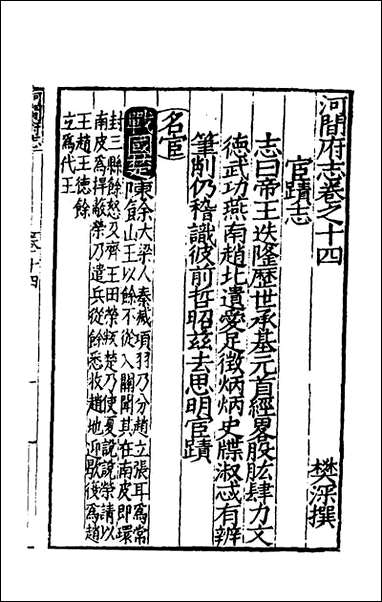 河間府志卷之十四 樊深撰
宦蹟志
志曰帝王迭隆歷世承基元首經畧股肱肆力文
德武功燕南趙北遺愛足徵炳炳史牒淑慝有辨
筆削仍稽識彼前哲昭茲去思明宦蹟
名宦
戰國楚陳餘大梁人秦滅項羽乃分趙立張耳為常
山王以餘不從入關聞其在南皮即環
封三縣餘怒又齊王田榮叛楚乃使夏說說榮請以
南皮為捍蔽榮乃遣兵從餘悉收趙地迎歇後為趙
王趙王德餘
立為代王